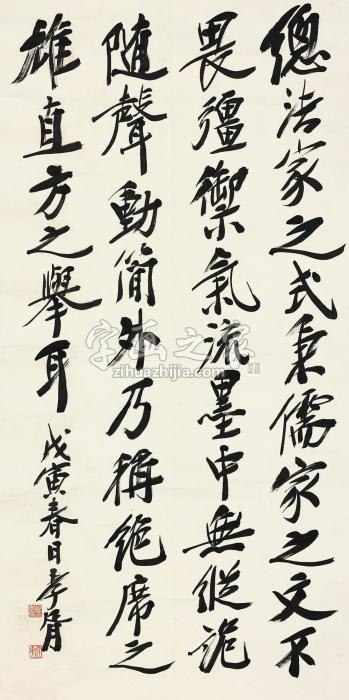 總法家之式秉儒家之文不
畏彊禦氣流墨中無縱詭
隨聲動簡外乃稱絕席之
雄直方之舉耳
戊寅春日孝胥
字画之家
zihuazhijia.com